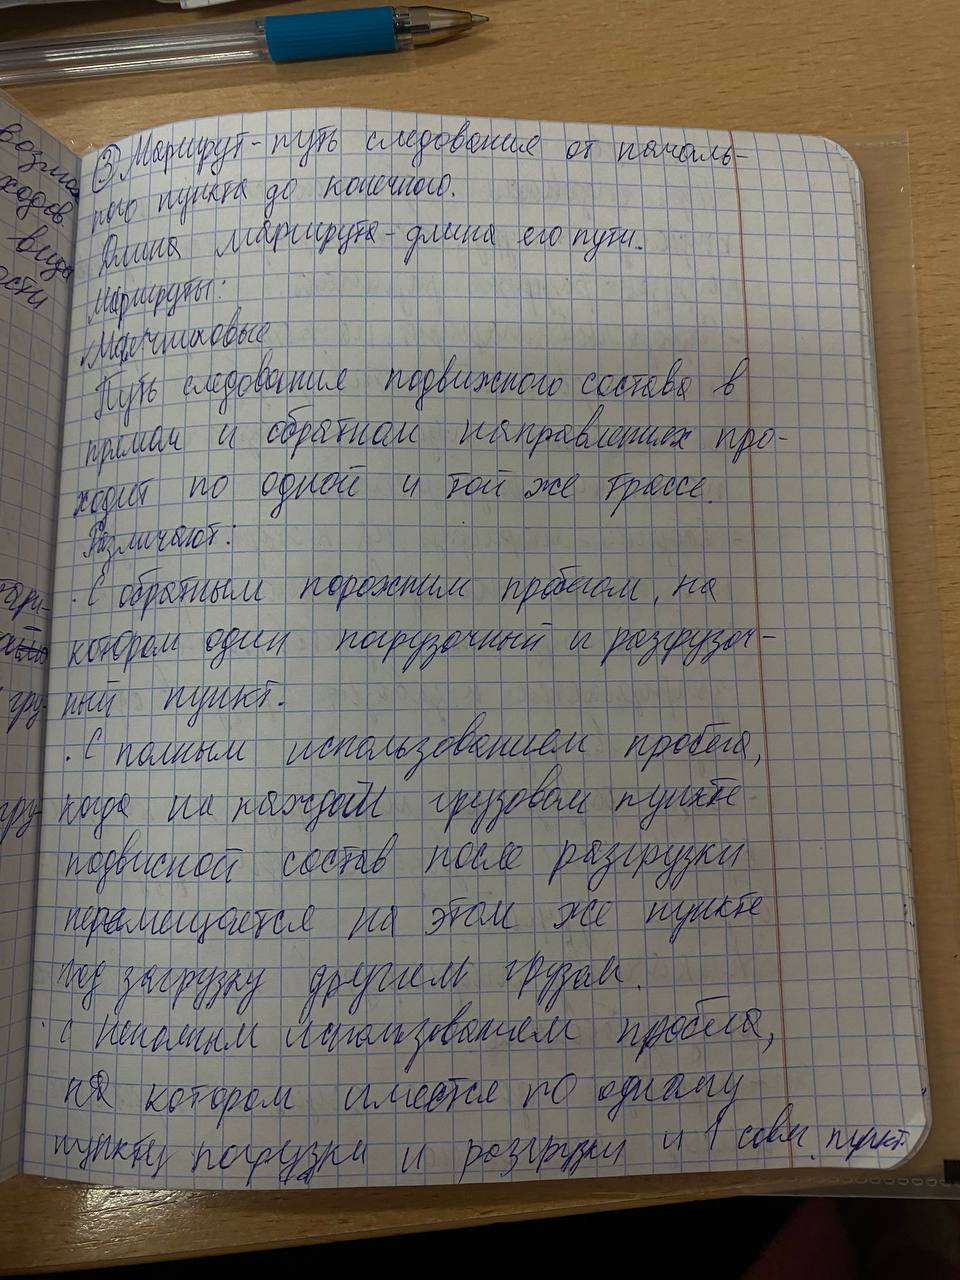 возник
ходов.
вида
ости
гру-
гру-
③ Маршрут - путь следования от началь-
ного пункта до конечного.
Длина маршрута - длина его пути.
Маршруты:
Маятниковые
Путь следования подвижного состава в
прямом и обратном направлениях про-
ходит по одной и той же трассе.
Различают:
· С обратным порожним пробегом, на
котором один погрузочный и разгрузоч-
ный пункт.
· С полным использованием пробега,
когда на каждом грузовом пункте
подвисной состав после разгрузки
перемещается на этом же пункте
под загрузку другим грузом.
· С неполным использованием пробега,
на котором имеется по одному
пункту погрузки и разгрузки и 1 совм. пункт.